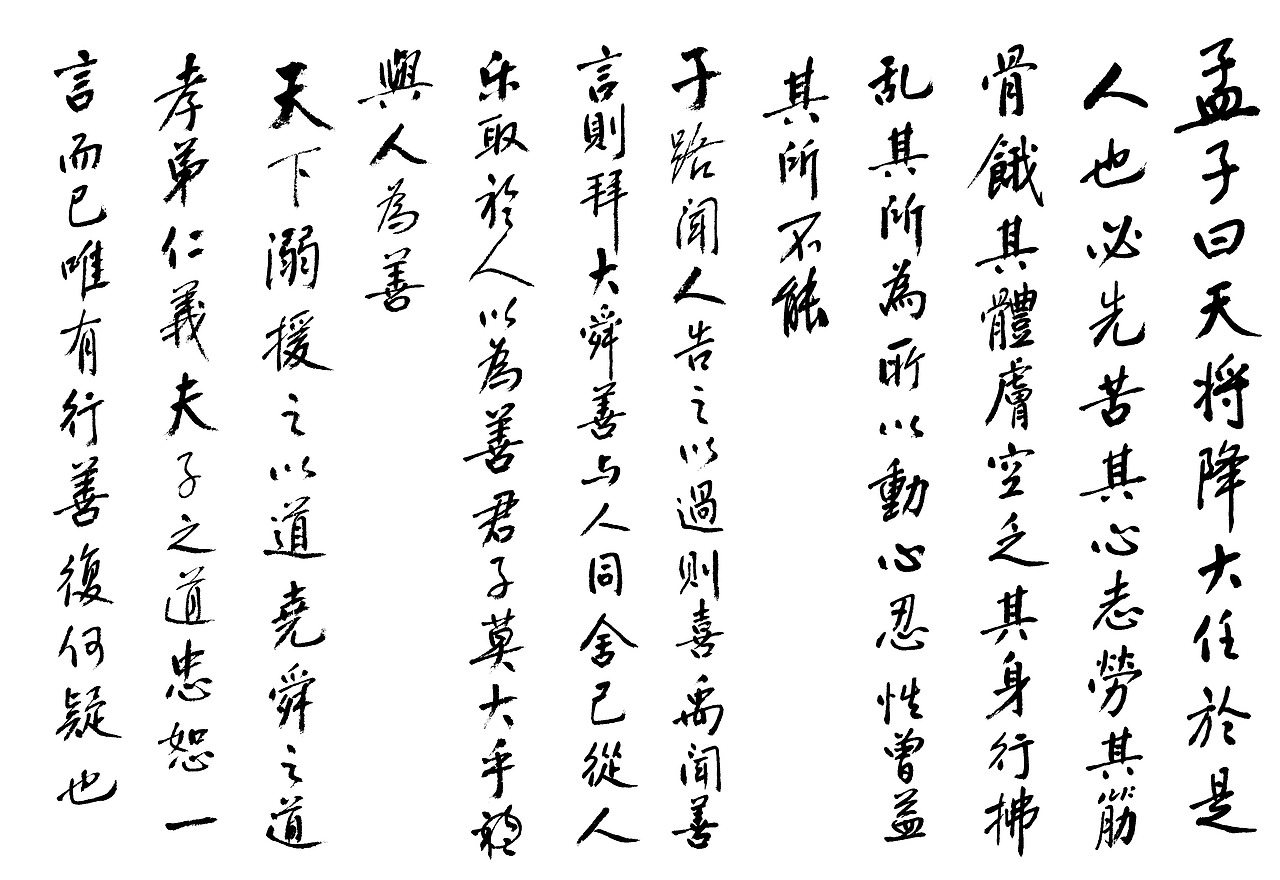 孟子曰天将降大任於是
人也必先苦其心志勞其筋
骨餓其體膚空乏其身行拂
乱其所為所以動心忍性曾益
其所不能
子路聞人告之以過則喜禹聞善
言則拜大舜善与人同舍己從人
乐取於人以為善君子莫大乎
與人為善
天下溺援之以道堯舜之道
孝弟仁義夫子之道忠恕一
言而已唯有行善復何疑也